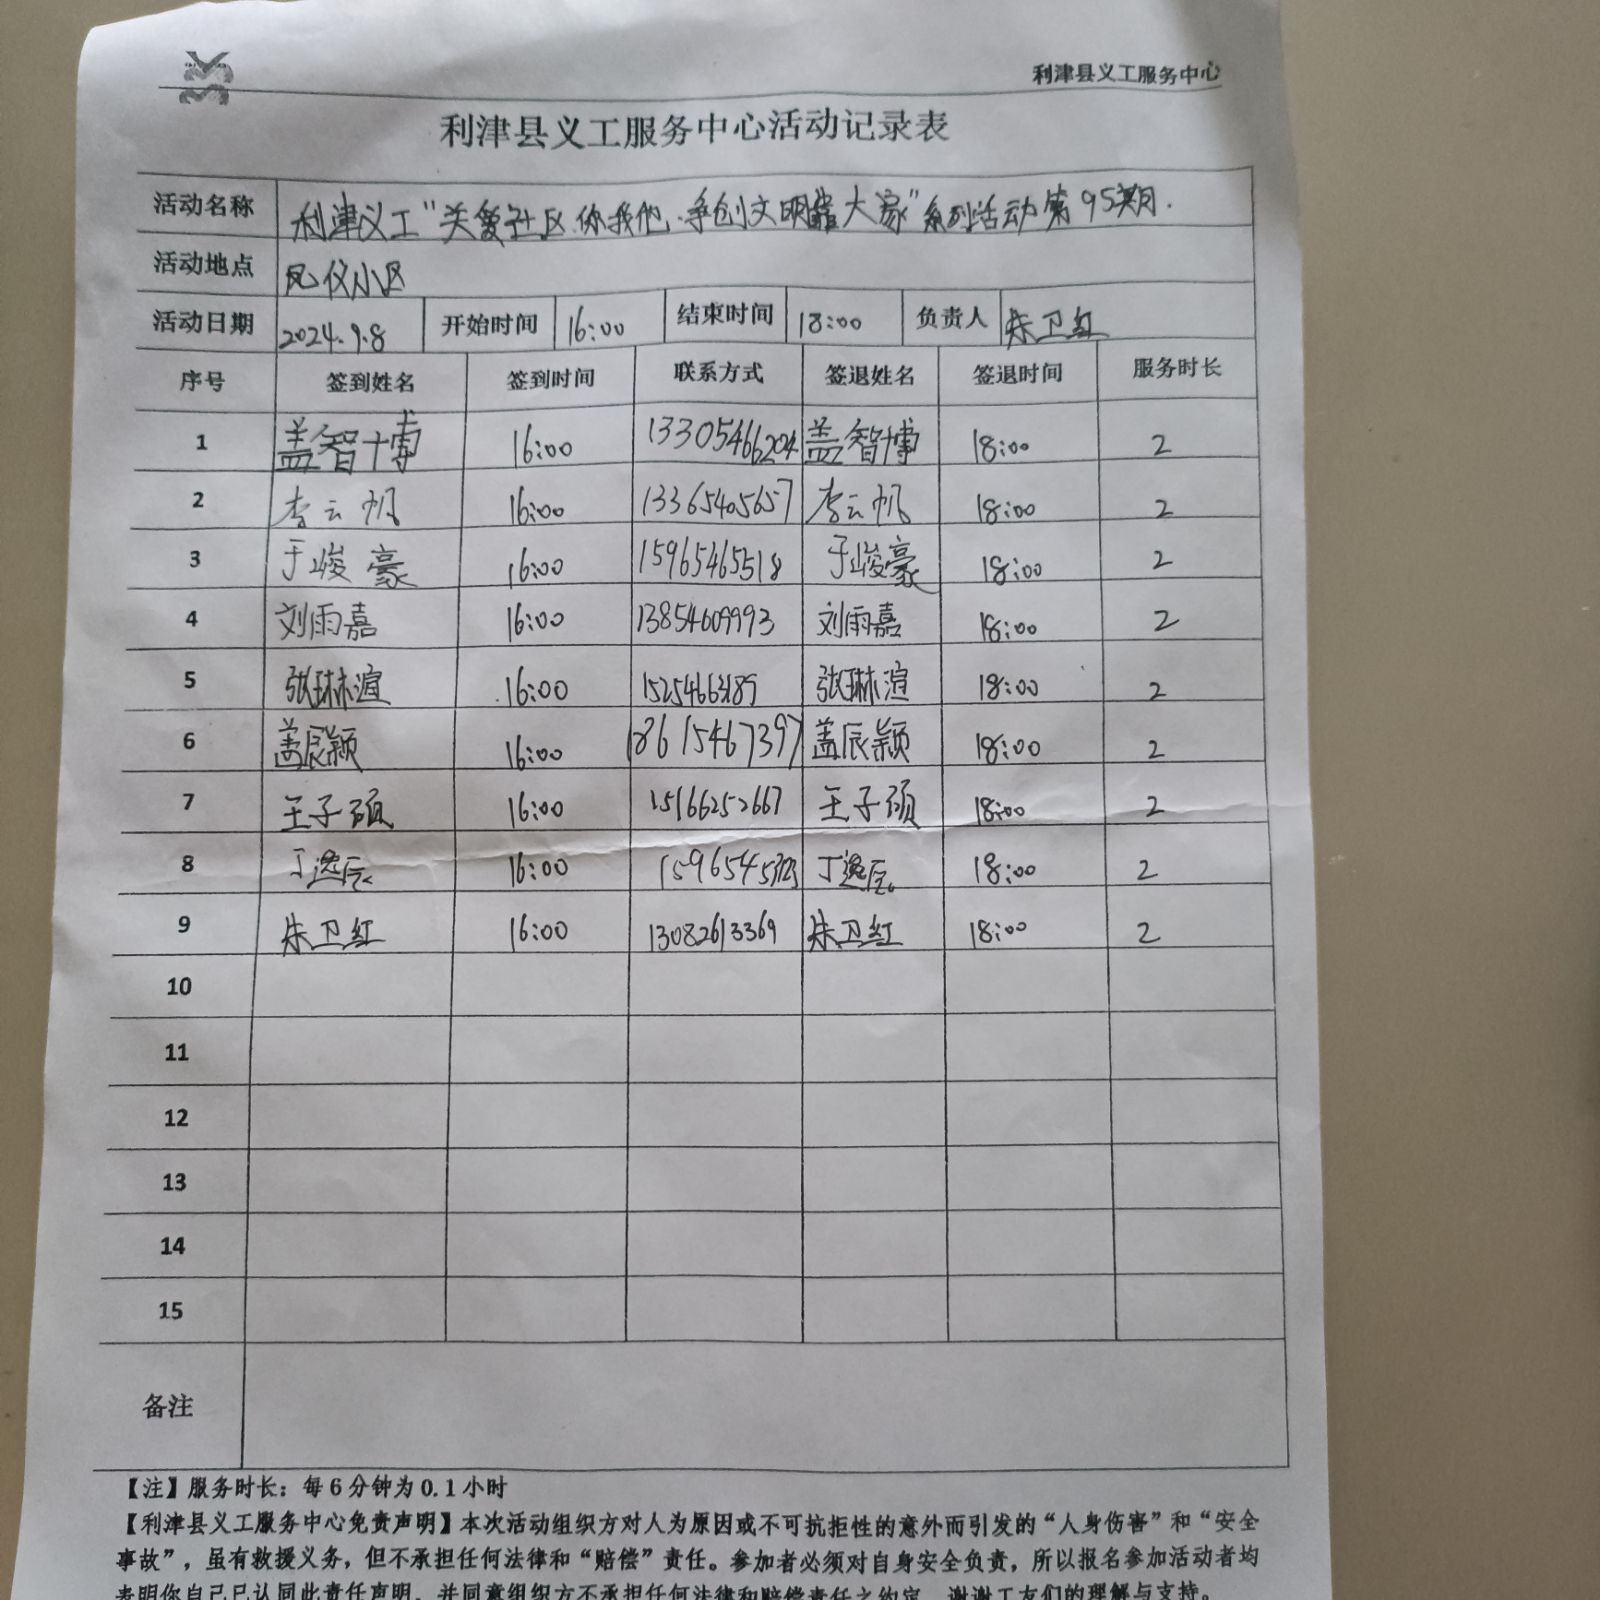 利津县义工服务中心
利津县义工服务中心活动记录表
活动名称 利津义工“关爱社区你我他,争创文明靠大家”系列活动第95期.
活动地点 凤仪小区
活动日期 2024.9.8 开始时间 16:00 结束时间 18:00 负责人 朱卫红
序号 签到姓名 签到时间 联系方式 签退姓名 签退时间 服务时长
1 盖智博 16:00 13305466204 盖智博 18:00 2
2 李云帆 16:00 13365405657 李云帆 18:00 2
3 于峻豪 16:00 15965465518 于峻豪 18:00 2
4 刘雨嘉 16:00 13854609993 刘雨嘉 18:00 2
5 张琳渲 16:00 张琳渲 18:00 2
6 盖辰颖 16:00 18615467397 盖辰颖 18:00 2
7 王子硕 16:00 15166252667 王子硕 18:00 2
8 丁逸辰 16:00 丁逸辰 18:00 2
9 朱卫红 16:00 13082613369 朱卫红 18:00 2
10
11
12
13
14
15
备注
【注】服务时长：每6分钟为0.1小时
【利津县义工服务中心免责声明】本次活动组织方对人为原因或不可抗拒性的意外而引发的“人身伤害”和“安全
事故”，虽有救援义务，但不承担任何法律和“赔偿”责任。参加者必须对自身安全负责，所以报名参加活动者均
表明你自己已认同此责任声明，并同意组织方不承担任何法律和赔偿责任之约定。谢谢工友们的理解与支持。